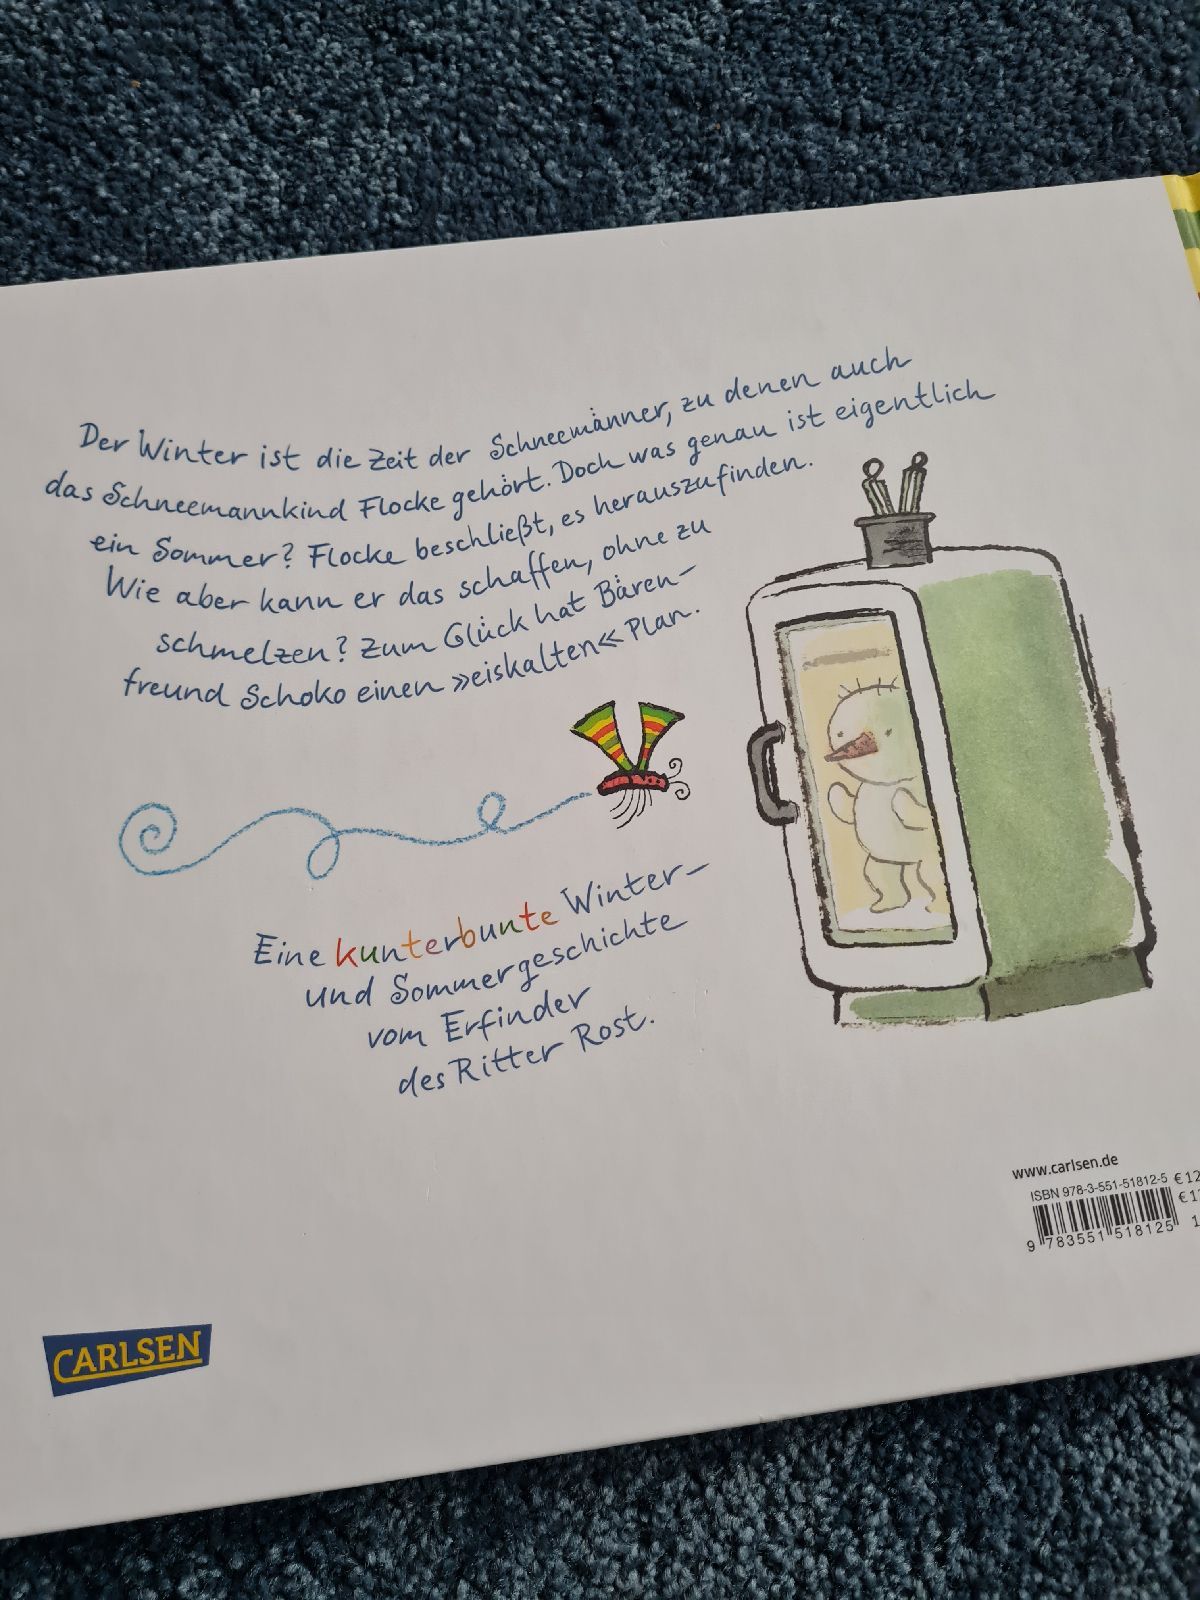 Der Winter ist die Zeit der Schneemänner, zu denen auch
das Schneemannkind Flocke gehört. Doch was genau ist eigentlich
ein Sommer? Flocke beschließt, es herauszufinden.
Wie aber kann er das schaffen, ohne zu
schmelzen? Zum Glück hat Bären-
freund Schoko einen »eiskalten« Plan.
Eine kunterbunte Winter-
und Sommergeschichte
vom Erfinder
des Ritter Rost.
www.carlsen.de
ISBN 978-3-551-51812-5 € 12
€ 1
9 783551 518125 1
CARLSEN